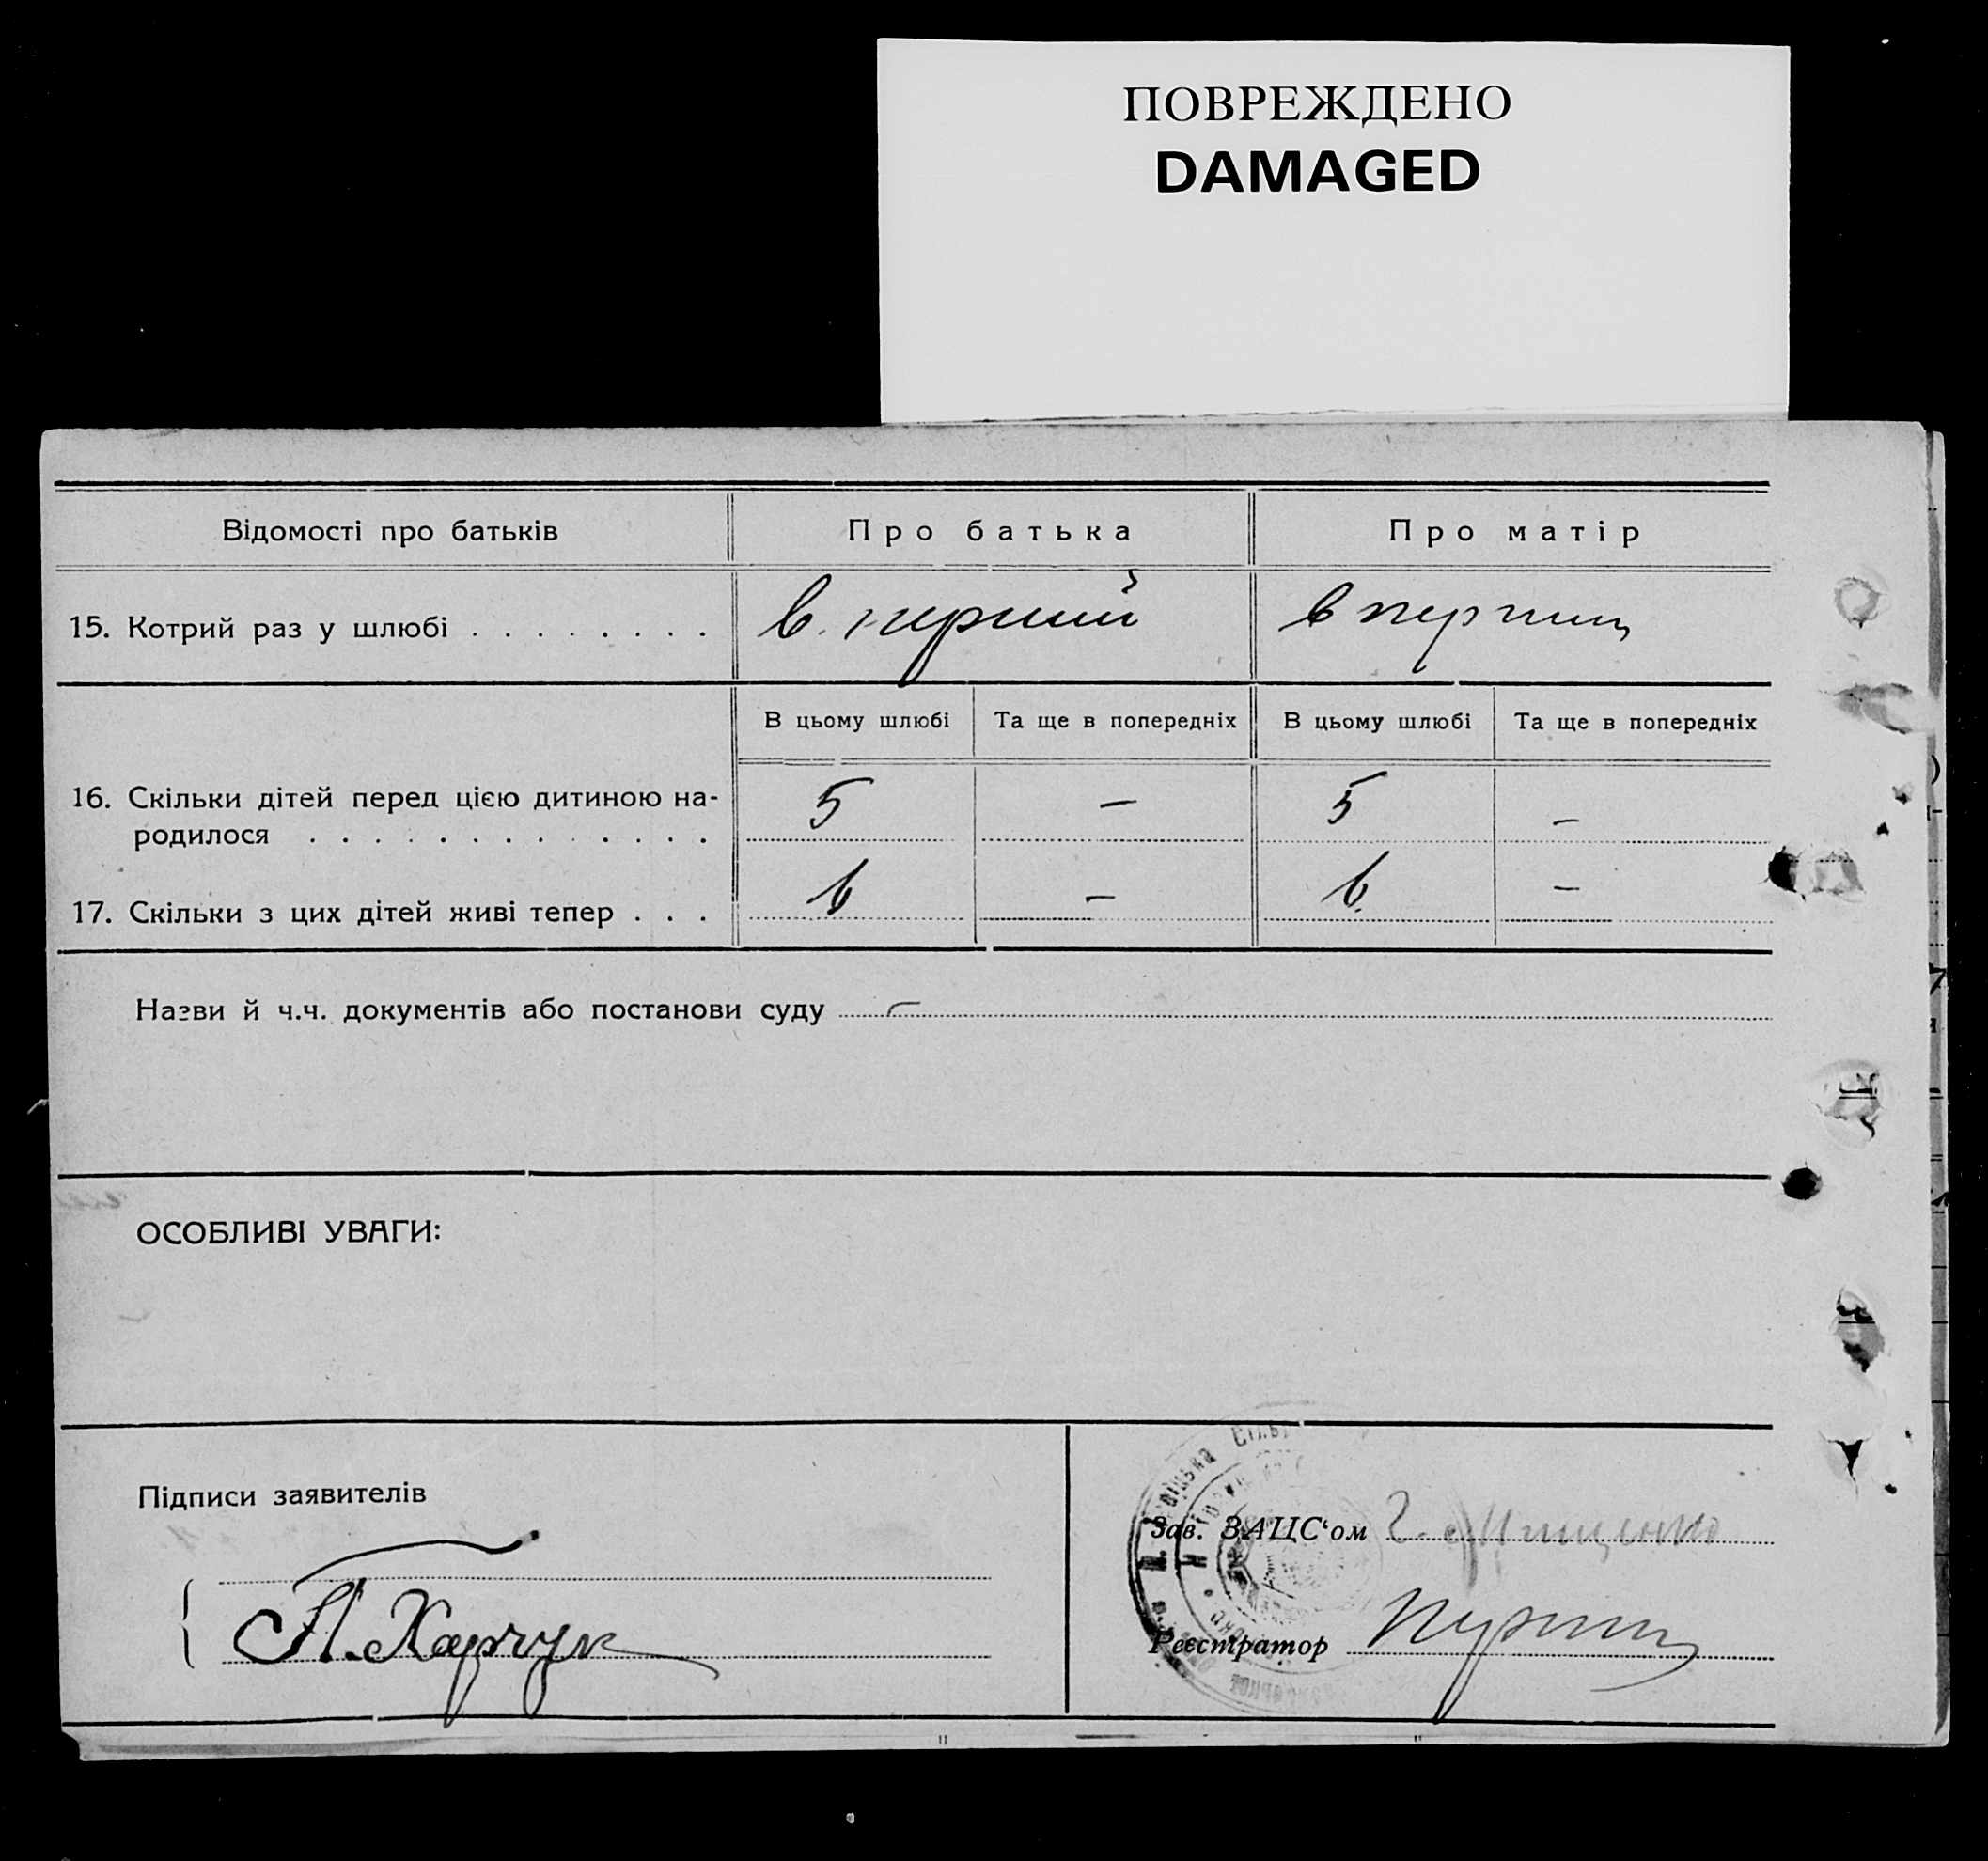 ПОВРЕЖДЕНО
DAMAGED
Відомості про батьків
Про батька
Про матір
15. Котрий раз у шлюбі . . . . . . . .
в перший
в перший
В цьому шлюбі
Та ще в попередніх
В цьому шлюбі
Та ще в попередніх
16. Скільки дітей перед цією дитиною на-
родилося . . . . . . . . . . . . .
5
–
5
–
17. Скільки з цих дітей живі тепер . . .
6
–
6
–
Назви й ч.ч. документів або постанови суду –
ОСОБЛИВІ УВАГИ:
Підписи заявителів
П. Харчук
Зав. ЗАЦС‘ом
Реєстратор